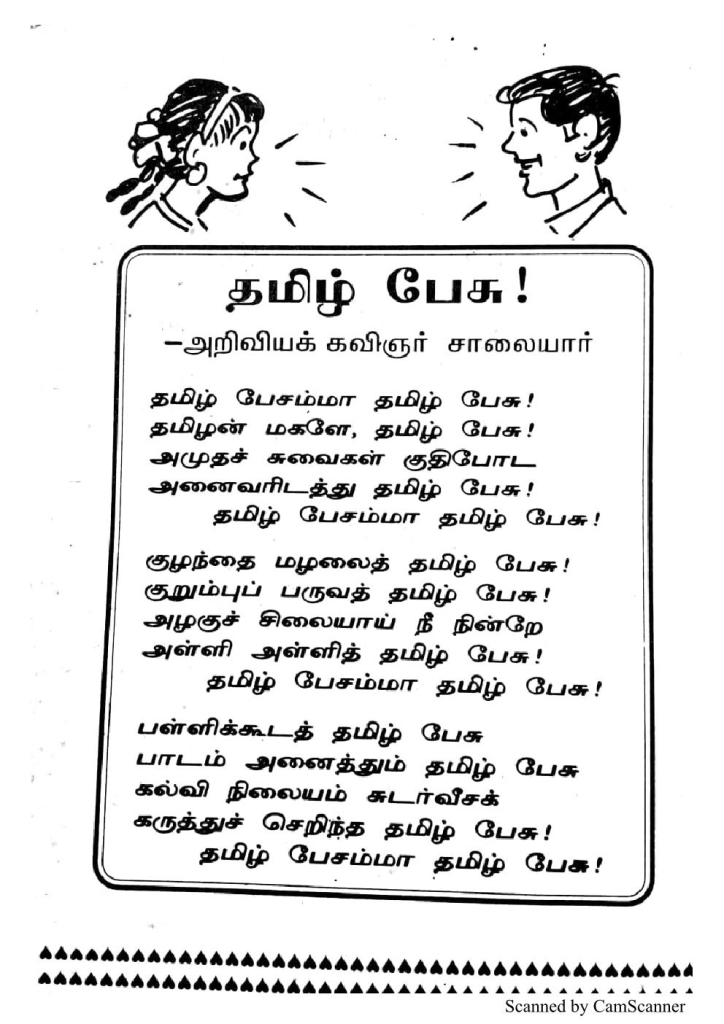 தமிழ் பேசு!
—அறிவியக் கவிஞர் சாலையார்
தமிழ் பேசம்மா தமிழ் பேசு!
தமிழன் மகளே, தமிழ் பேசு!
அமுதச் சுவைகள் குதிபோட
அனைவரிடத்து தமிழ் பேசு!
தமிழ் பேசம்மா தமிழ் பேசு!
குழந்தை மழலைத் தமிழ் பேசு!
குறும்புப் பருவத் தமிழ் பேசு!
அழகுச் சிலையாய் நீ நின்றே
அள்ளி அள்ளித் தமிழ் பேசு!
தமிழ் பேசம்மா தமிழ் பேசு!
பள்ளிக்கூடத் தமிழ் பேசு
பாடம் அனைத்தும் தமிழ் பேசு
கல்வி நிலையம் சுடர்வீசக்
கருத்துச் செறிந்த தமிழ் பேசு!
தமிழ் பேசம்மா தமிழ் பேசு!
Scanned by CamScanner